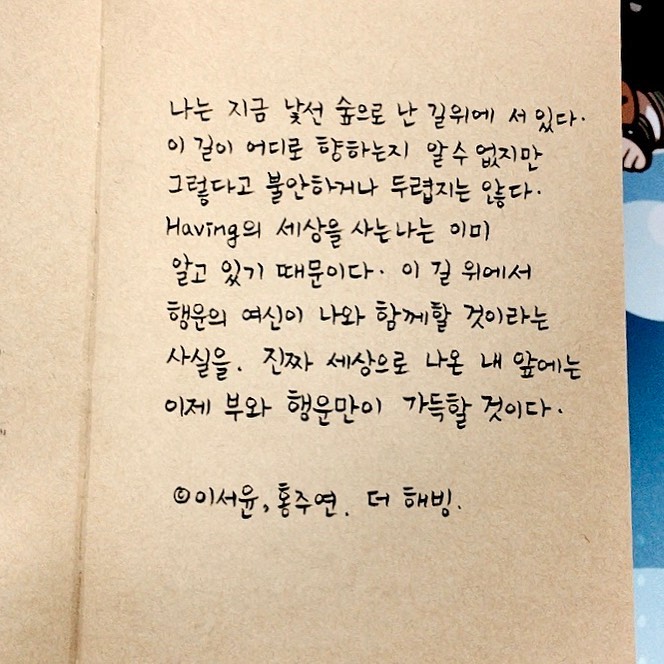 나는 지금 낯선 숲으로 난 길위에 서 있다.
이 길이 어디로 향하는지 알 수 없지만
그렇다고 불안하거나 두렵지는 않다.
Having의 세상을 사는 나는 이미
알고 있기 때문이다. 이 길 위에서
행운의 여신이 나와 함께할 것이라는
사실을. 진짜 세상으로 나온 내 앞에는
이제 부와 행운만이 가득할 것이다.
©이서윤, 홍주연. 더 해빙.